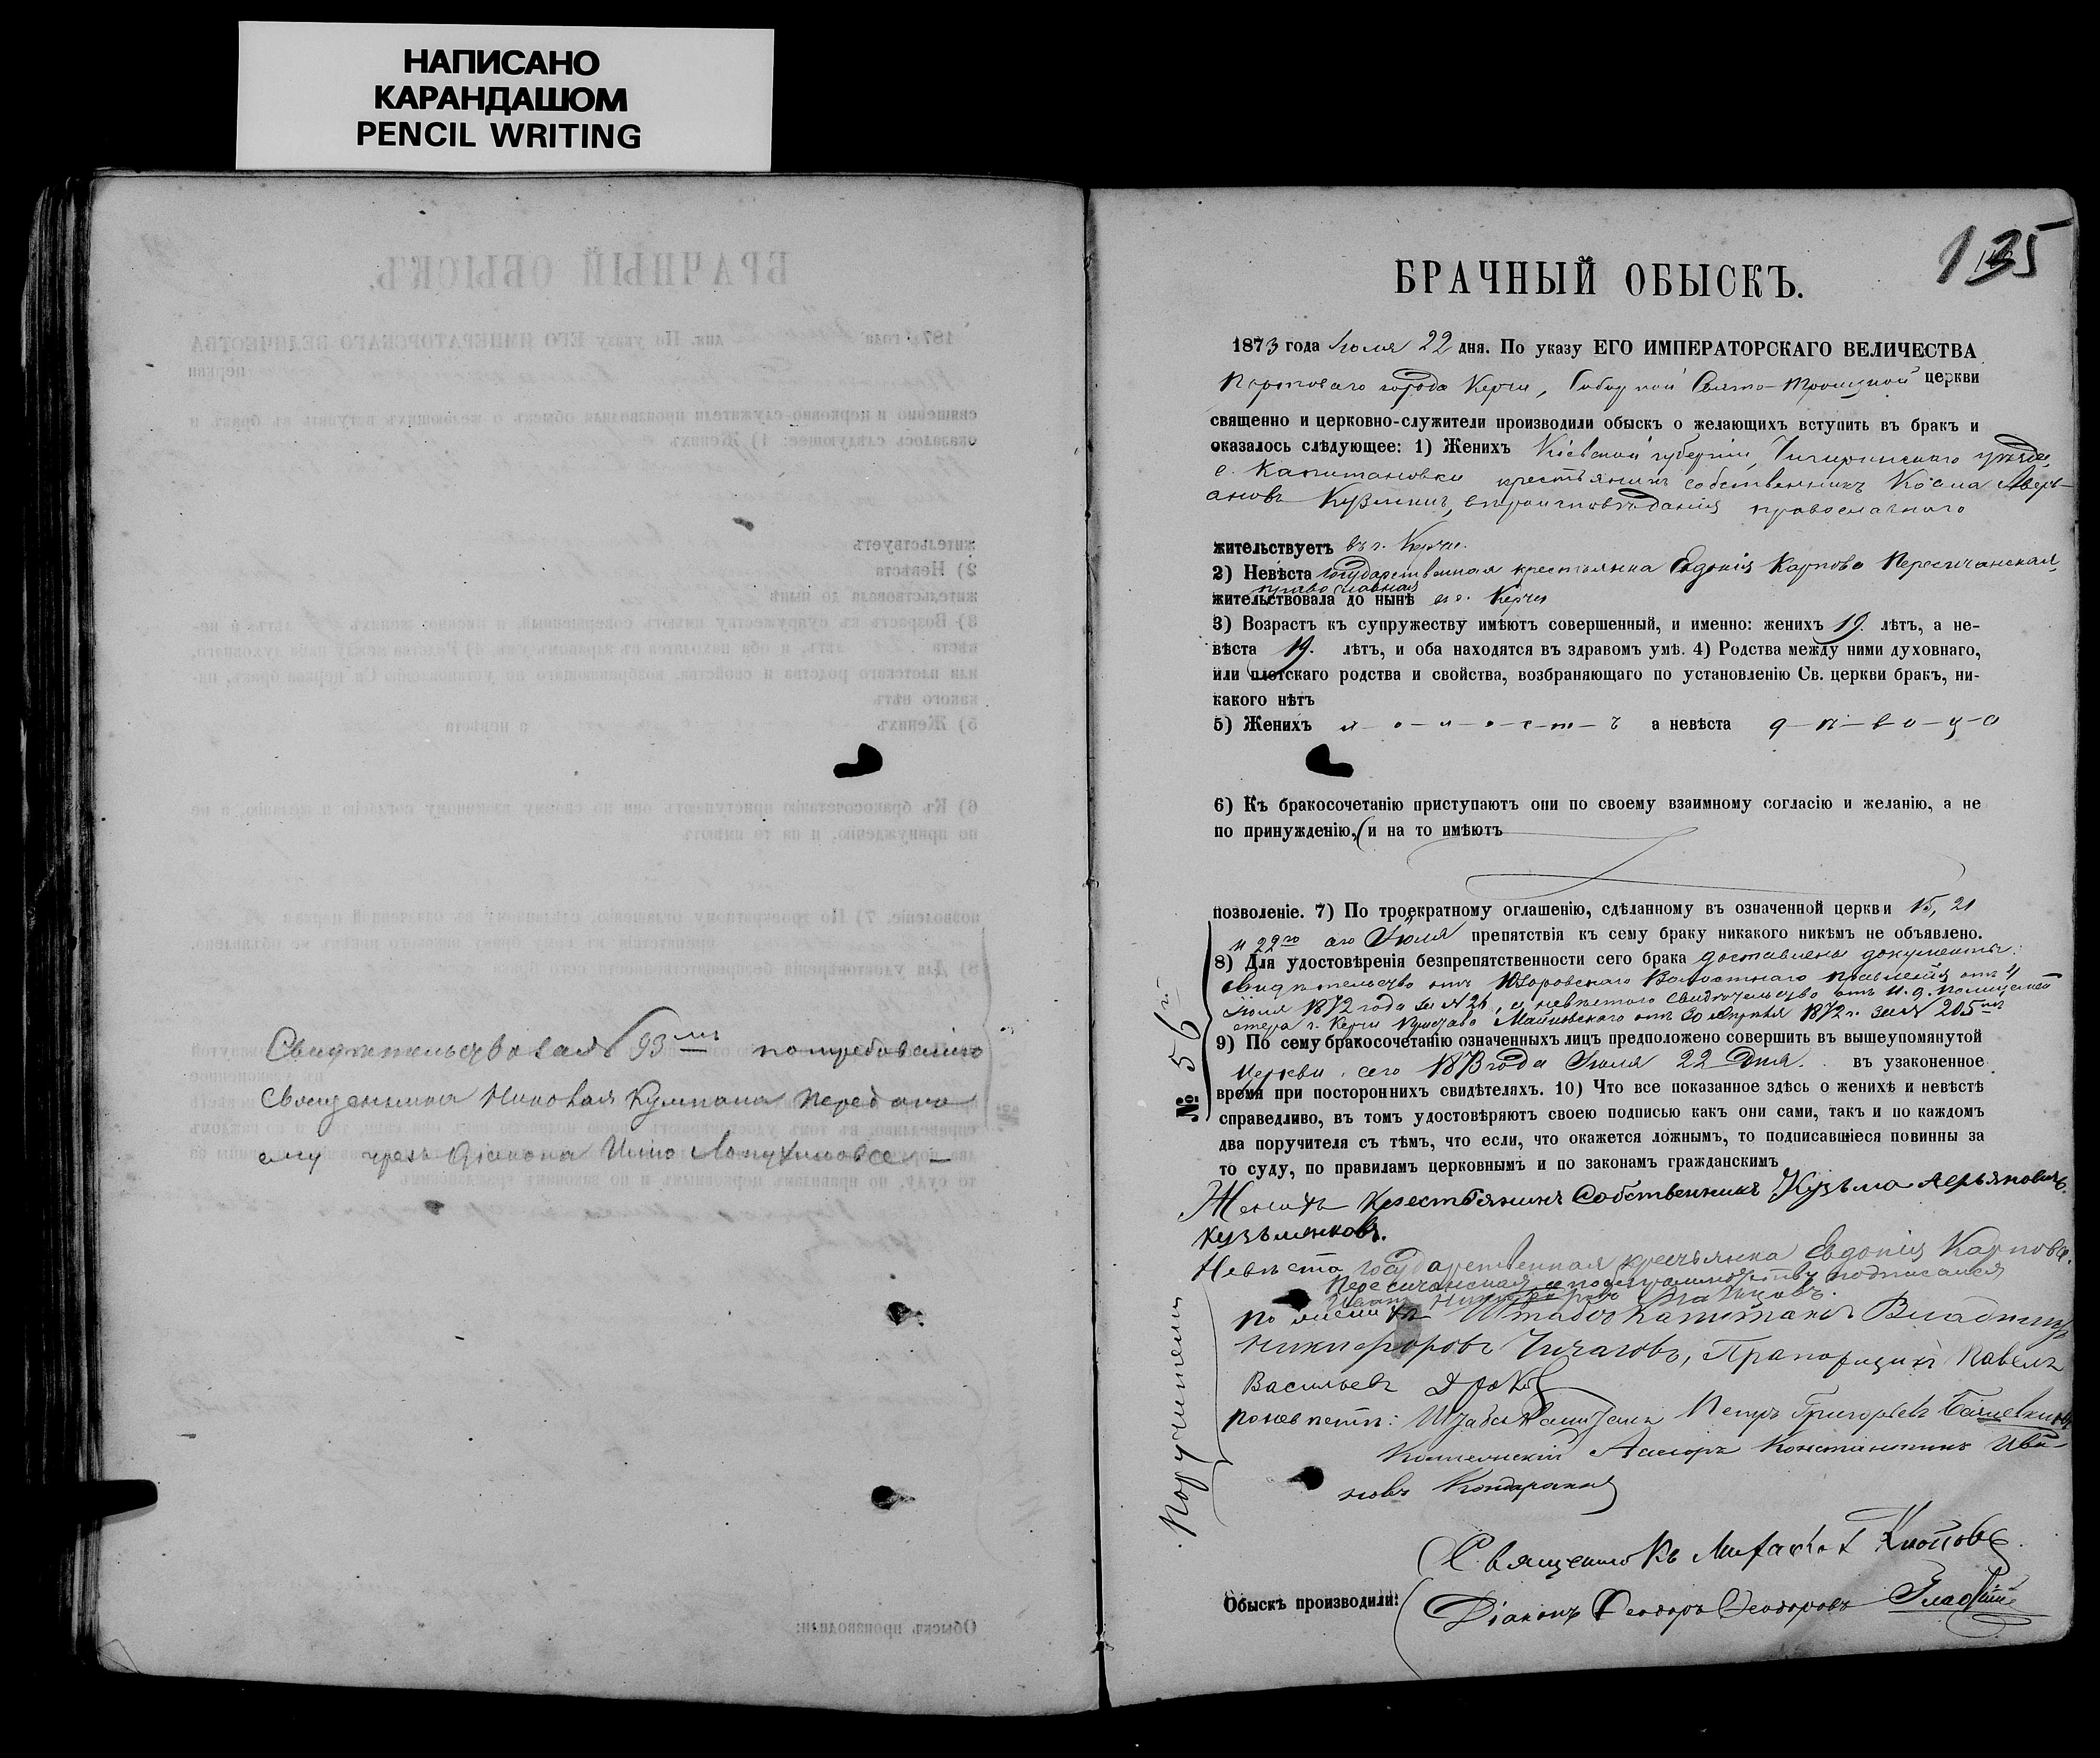 НАПИСАНО
КАРАНДАШОМ
PENCIL WRITING
Свидѣтельство за № 93мъ по требованію
Священника Николая передано
ему чрезъ Діакона
135
БРАЧНЫЙ ОБЫСКЪ.
1873 года Іюля 22 дня. По указу ЕГО ИМПЕРАТОРСКАГО ВЕЛИЧЕСТВА
Портоваго города Керчи, Соборной Свято-Троицкой церкви
священно и церковно-служители производили обыскъ о желающихъ вступить въ бракъ и
оказалось слѣдующее: 1) Женихъ Кіевской губерніи, Чигиринскаго уѣзда,
с. Капитановки крестьянинъ собственникъ Косма Аверь-
ановъ вѣроисповѣданія православнаго
жительствуетъ въ г. Керчи.
2) Невѣста государственная крестьянка Евдокія Карпова Пересичанская,
православная
жительствовала до нынѣ въ г. Керчи
3) Возрастъ къ супружеству имѣютъ совершенный, и именно: женихъ 19. лѣтъ, а не-
вѣста 19. лѣтъ, и оба находятся въ здравомъ умѣ. 4) Родства между ними духовнаго,
или плотскаго родства и свойства, возбраняющаго по установленію Св. церкви бракъ, ни-
какого нѣтъ
5) Женихъ х-о-л-о-с-т-ъ а невѣста д-ѣ-в-и-ц-а
6) Къ бракосочетанію приступаютъ они по своему взаимному согласію и желанію, а не
по принужденію, (и на то имѣютъ
позволеніе. 7) По троекратному оглашенію, сдѣланному въ означенной церкви 15, 21
и 22го Іюля препятствія къ сему браку никакого никѣмъ не объявлено.
8) Для удостовѣренія безпрепятственности сего брака доставлены документы:
свидѣтельство отъ Волостнаго Правленія отъ 4
Іюля 1872 года за № 26, и невѣстою свидѣтельство отъ И. д. Полицей-
мстера г. Керчи отъ 30 Апрѣля 1872 г. за № 205мъ
9) По сему бракосочетанію означенныхъ лицъ предположено совершить въ вышеупомянутой
Церкви сего 1873 года Іюля 22 Дня. въ узаконенное
время при постороннихъ свидѣтеляхъ. 10) Что все показанное здѣсь о женихѣ и невѣстѣ
справедливо, въ томъ удостовѣряютъ своею подписью какъ они сами, такъ и по каждомъ
два поручителя съ тѣмъ, что если, что окажется ложнымъ, то подписавшіеся повинны за
то суду, по правиламъ церковнымъ и по законамъ гражданскимъ
№ 56й
Женихъ Крестьянинъ Собственникъ Кузьма Аерьяновичъ
Кузьменковъ.
Невѣста государственная крестьянка Евдокія Карпова
Пересичанская, а подписался
Иванъ
Поручители
по женихѣ Штабсъ Капитанъ Владиміръ
Никифоровъ Чичаговъ, Прапорщикъ Павелъ
Васильевъ
по невѣстѣ: Штабсъ Капитанъ Петръ Григорьевъ
Константинъ Ива-
новъ
Священникъ
Обыскъ производили:
Діаконъ Ѳеодоръ Ѳеодоровъ